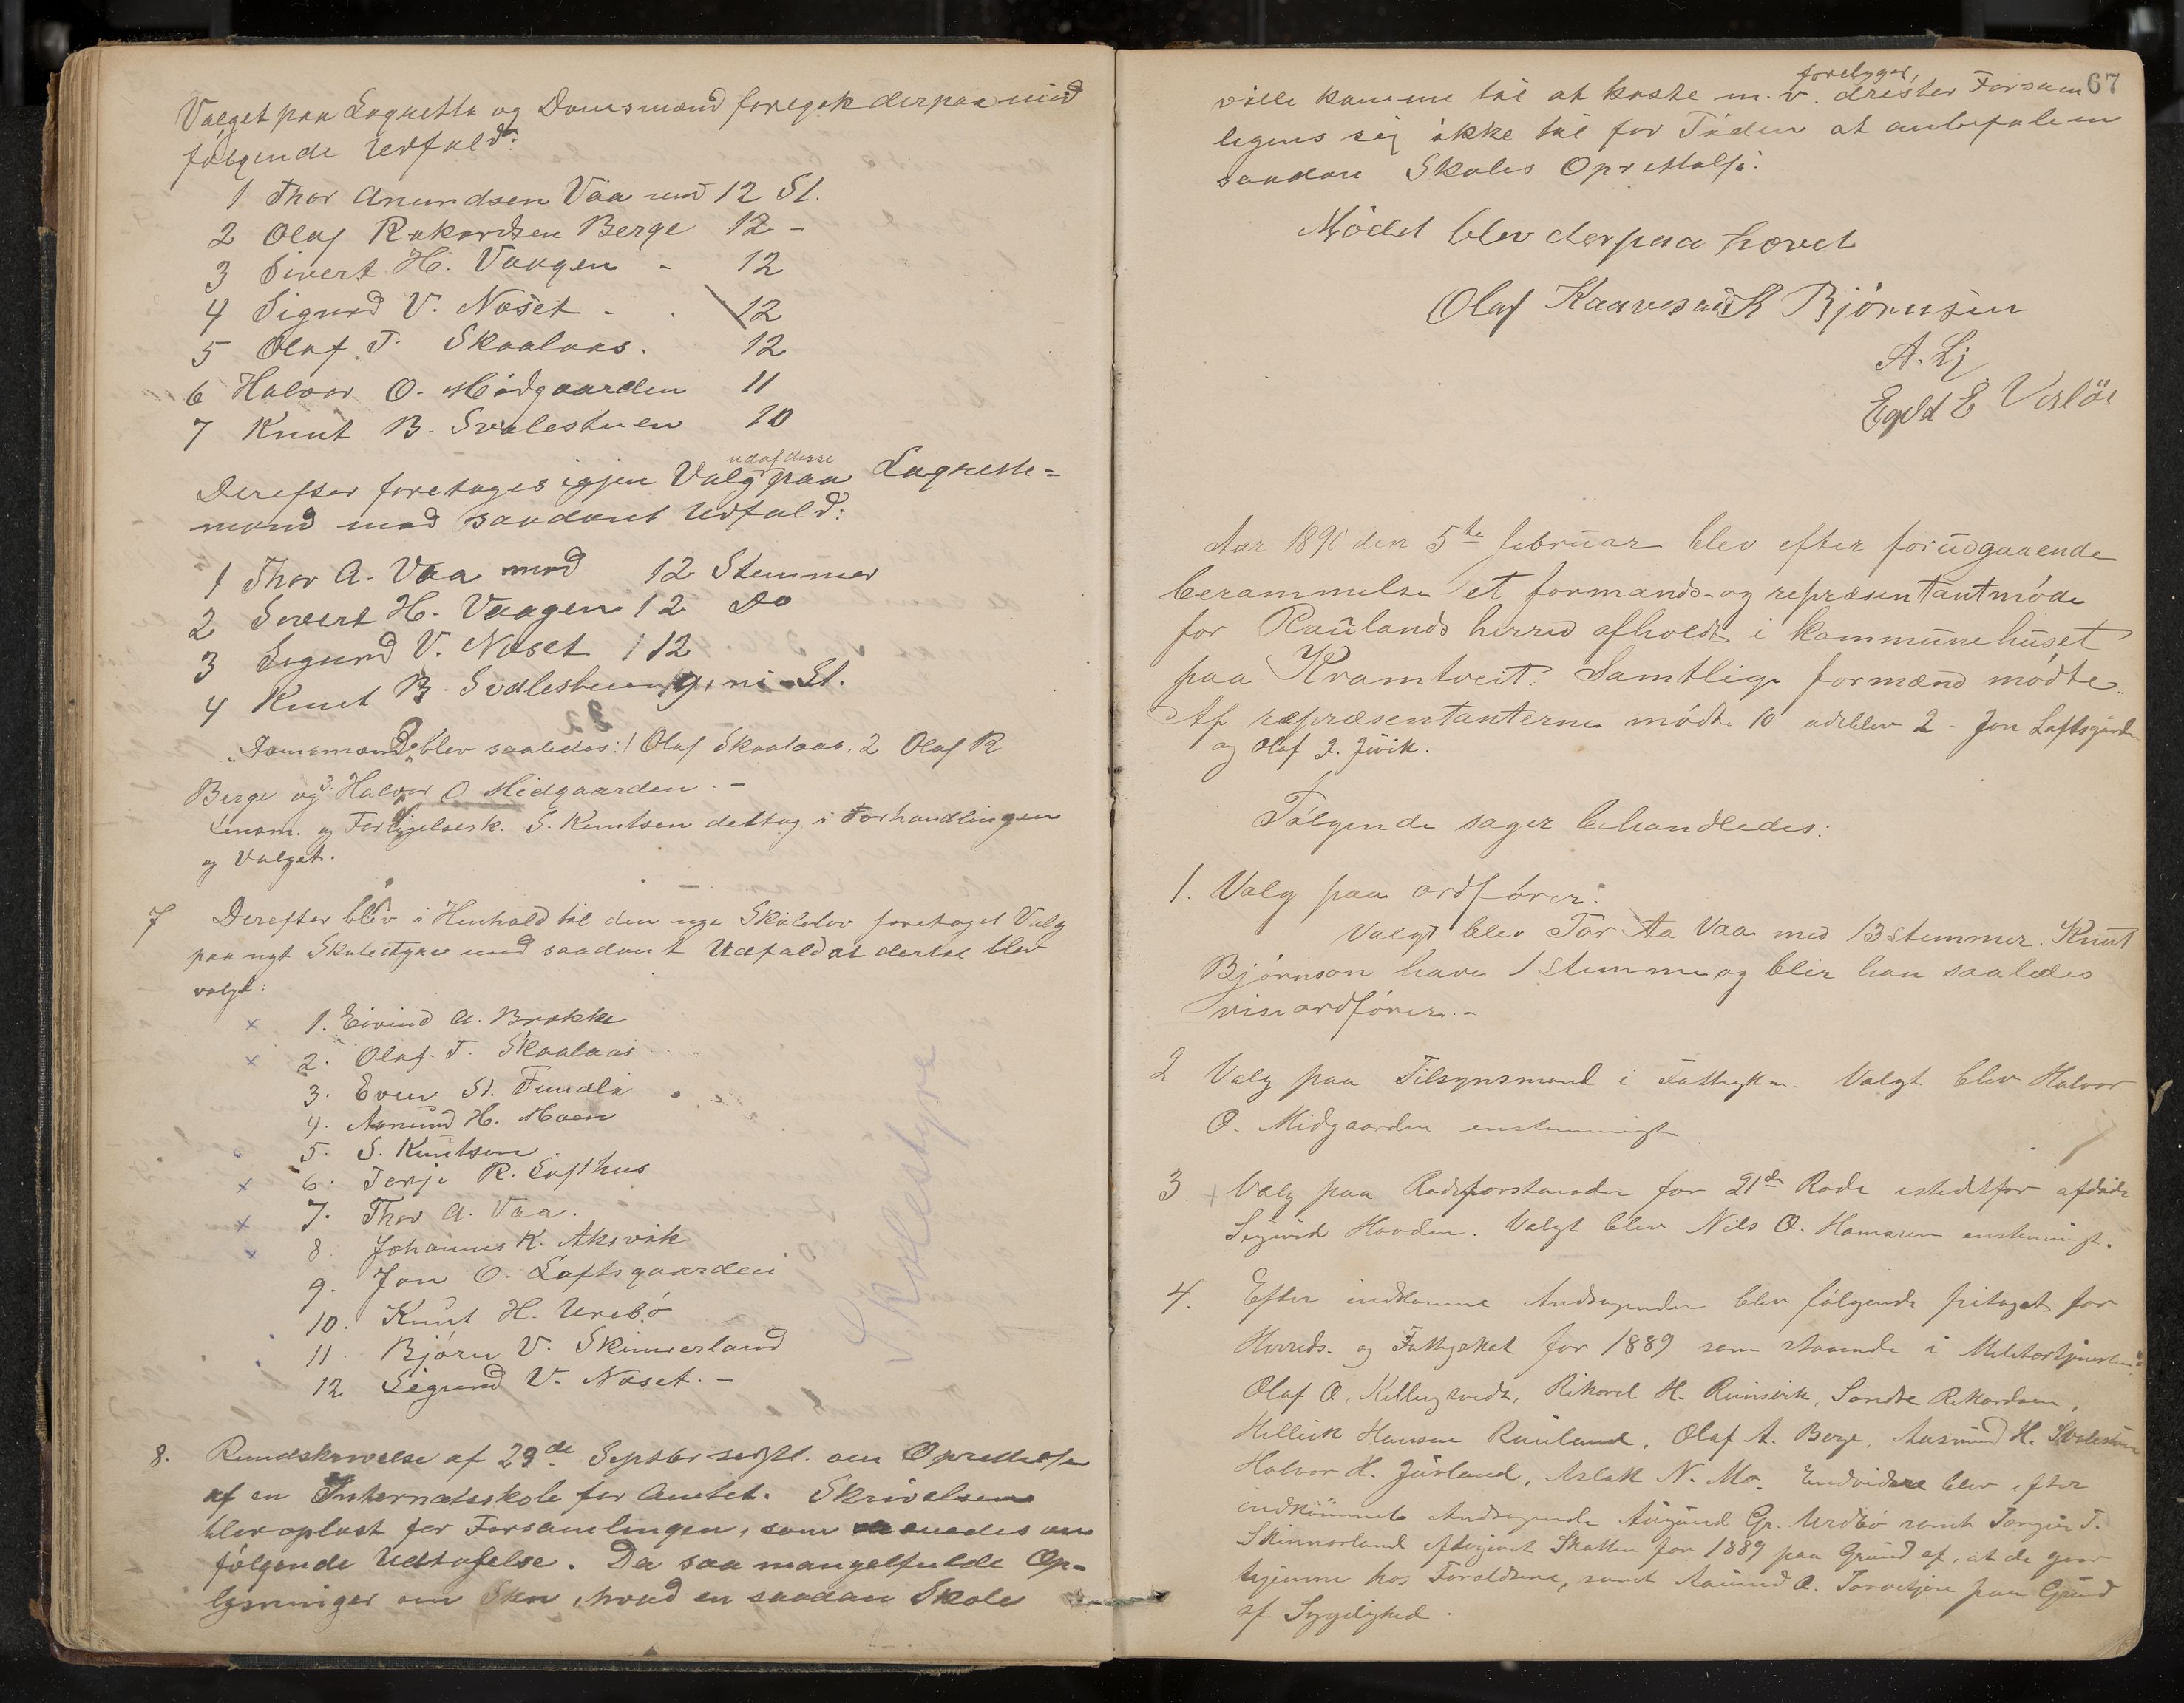 Valget paa Lagrette og Domsmænd foregik derpaa med
følgende Udfald:
1 Thor Anundsen Vaa med 12 St.
2 Olaf Rikardsen Berge 12 -
3 Sivert H. Vaagen - 12
4 Sigurd V. Næset - . 12
5 Olaf T. Skaalaas. 12
6 Halvor O. Midgaarden 11
7 Knut B. Svalestuen 10
Derefter foretages igjen Valg udaf disse paa Lagrette=
mænd med saadant Udfald:
1 Thor A. Vaa med 12 Stemmer
2 Sivert H. Vaagen 12 Do
3 Sigurd V. Næset 12
4 Knut B. Svalestuen 9, ni St.
Domsmænd blev saaledes: 1 Olaf Skaalaas. 2 Olaf R
Berge og 3. Halvor O Midgaarden. -
Lensm. og Forligelsesk. S. Knutsen deltog i Forhandlingen
og Valget.
7 Derefter blev i Henhold til den nye Skolelov foretaget Valg
paa nyt Skolestyre med saadant Udfald at dertil blev
valgt:
x 1. Eivind A. Brokke
x 2. Olaf T. Skaalaas
3. Even St. Fundli
4. Aanund H. Moen
5. S. Knutsen
x 6. Terje R. Lofthus
x 7. Thor A. Vaa.
x 8. Johannes K. Aksvik
9. Jon O. Loftsgaarden
10. Knut H. Urebø
11. Bjørn V. Skinnerland
12 Sigurd V. Næset. -
Skolestyre
8. Rundskrivelse af 29de Septbr sidstl. om Oprettelse
af en Internatsskole for Amtet. Skrivelsen
blev oplæst for Forsamlingen, som enedes om
følgende Udtalelse. Da saa mangelfulde Op-
lysninger om hvad en saadan Skole
67
ville komme til at koste m. v. foreligger, drister Forsam
lingens sig ikke til for Tiden at anbefale en
saadan Skoles Oprettelse.
Mødet blev derpaa hævet
Olaf Kaavesand K Bjørnsen
A. Lj
Aar 1890 den 5te februar blev efter forudgaaende
berammelse et formands- og repræsentantmøde
for Raulands herred afholdt i kommunehuset
paa Kramtveit. Samtlige formænd mødte.
Af repræsentanterne mødte 10 udeblev 2 - Jon Loftsgarden
og Olaf J. Juvik.
Følgende sager behandledes:
1. Valg paa ordfører:
Valgt blev Tor Aa Vaa med 13 stemmer. Knut
Bjørnson havde 1 stemme og blir han saaledes
viseordfører. -
2 Valg paa Tilsynsmand i Fattigkm. Valgt blev Halvor
O. Midgaarden enstemmigt.
3. + Valg paa Rodeforstander for 21de Rode istedetfor afdøde
Sigurd Hovden. Valgt blev Nils O. Hamaren enstemmigt.
4. Efter indkomne Andragender blev følgende fritaget for
Herreds- og Fattigskat for 1889 som staaende i Militærtjenesten:
Olaf O. Kellingtveidt, Rikard H. Rinsvik, Søndre Rikardsen,
Hellick Hansen Rauland, Olaf A. Berge, Aasmund H. Svalestuen
Halvor H. Jurland, Aslak N. Mo. Endvidere blev efter
indkommet Andragende Augund Gr. Urdbø samt Torgeir T.
Skinnarland eftergivet Skatten for 1889 paa Grund af, at de gaar
hjemme hos Forældrene, samt Aanund O. Torvetjøn paa Grund
af Sygelighed.